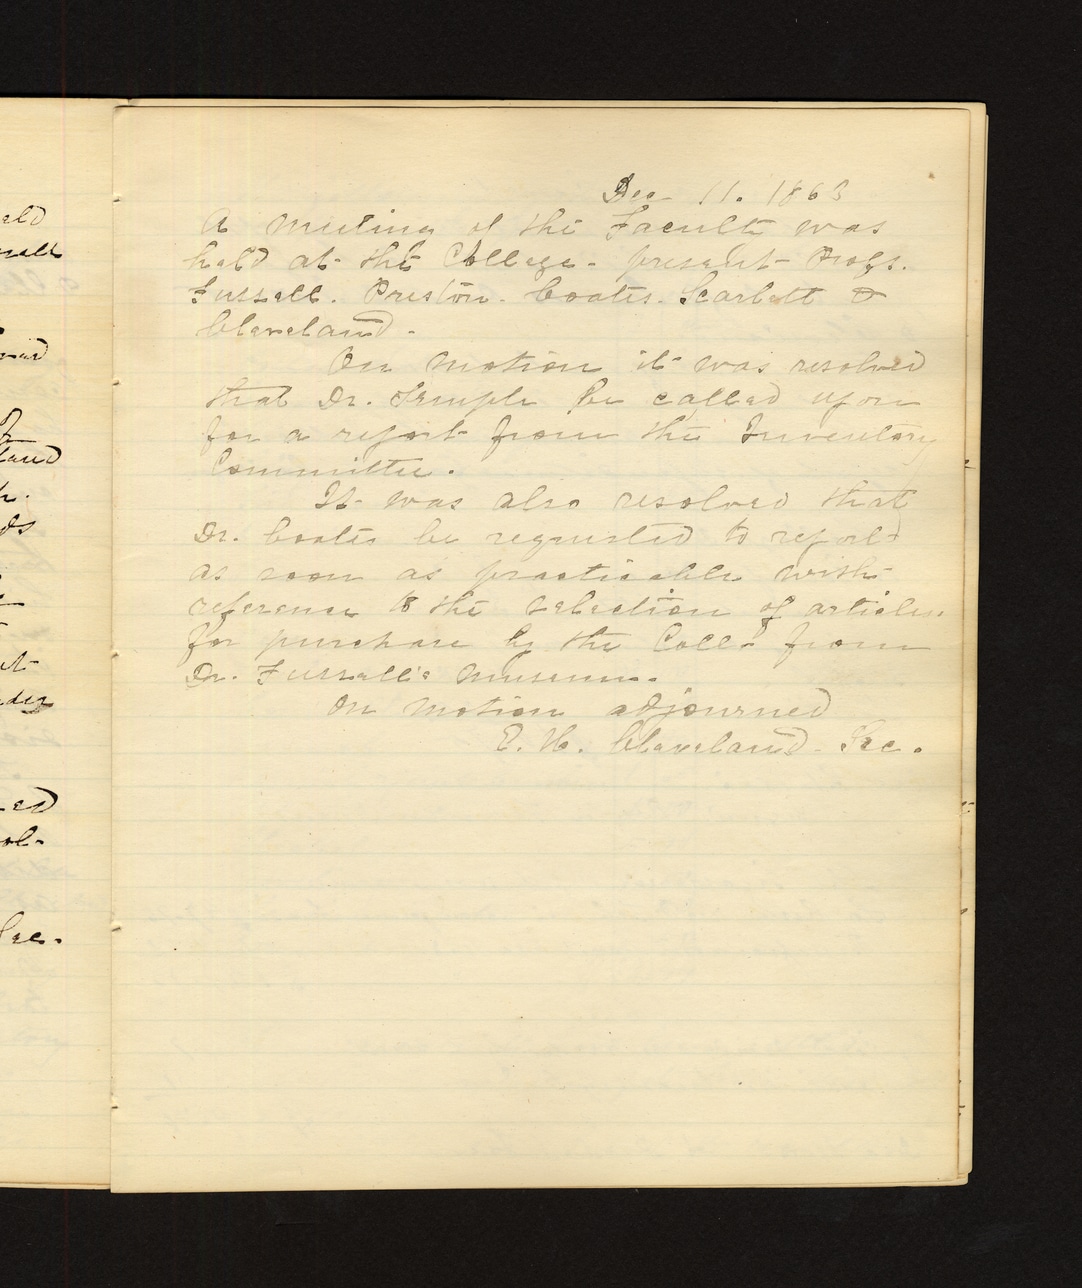 Dec 11. 1863
A meeting of the Faculty was
held at the College - present Profs.
Fussell. Preston. Coates. Scarlett &
Cleveland.
On motion it was resolved
that Dr. Temple be called upon
for a report from the Inventory
Committee.
It was also resolved that
Dr. Coates be requested to report
as soon as practicable with
reference to the selection of articles
for purchase by the Coll. from
Dr. Fussell's Museum.
On motion adjourned
E. H. Cleveland - Sec.